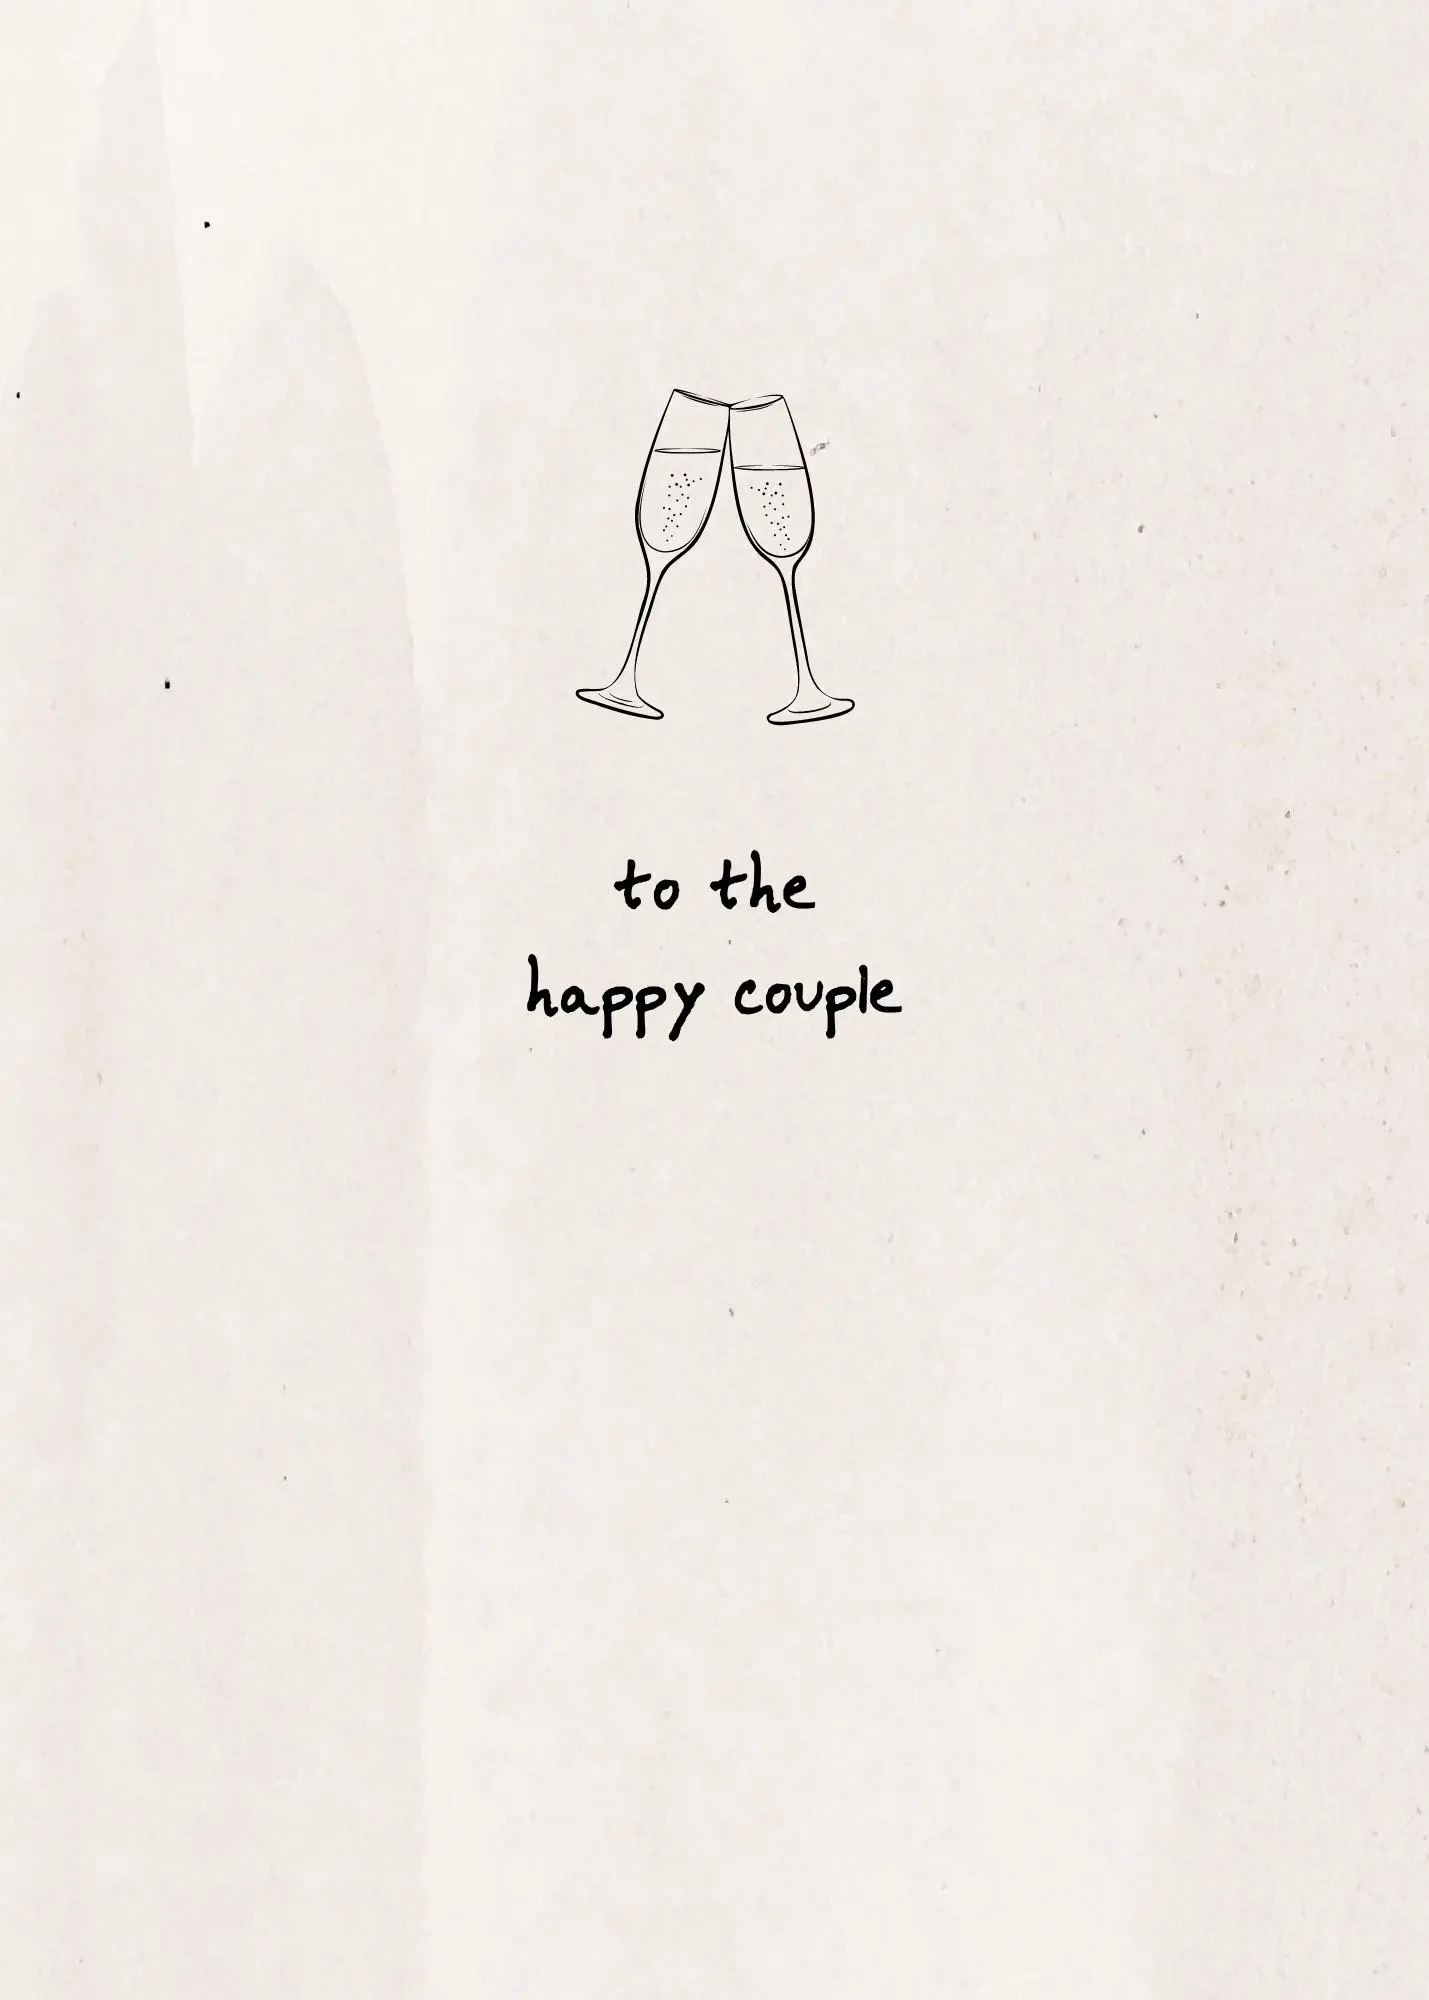 to the
happy couple